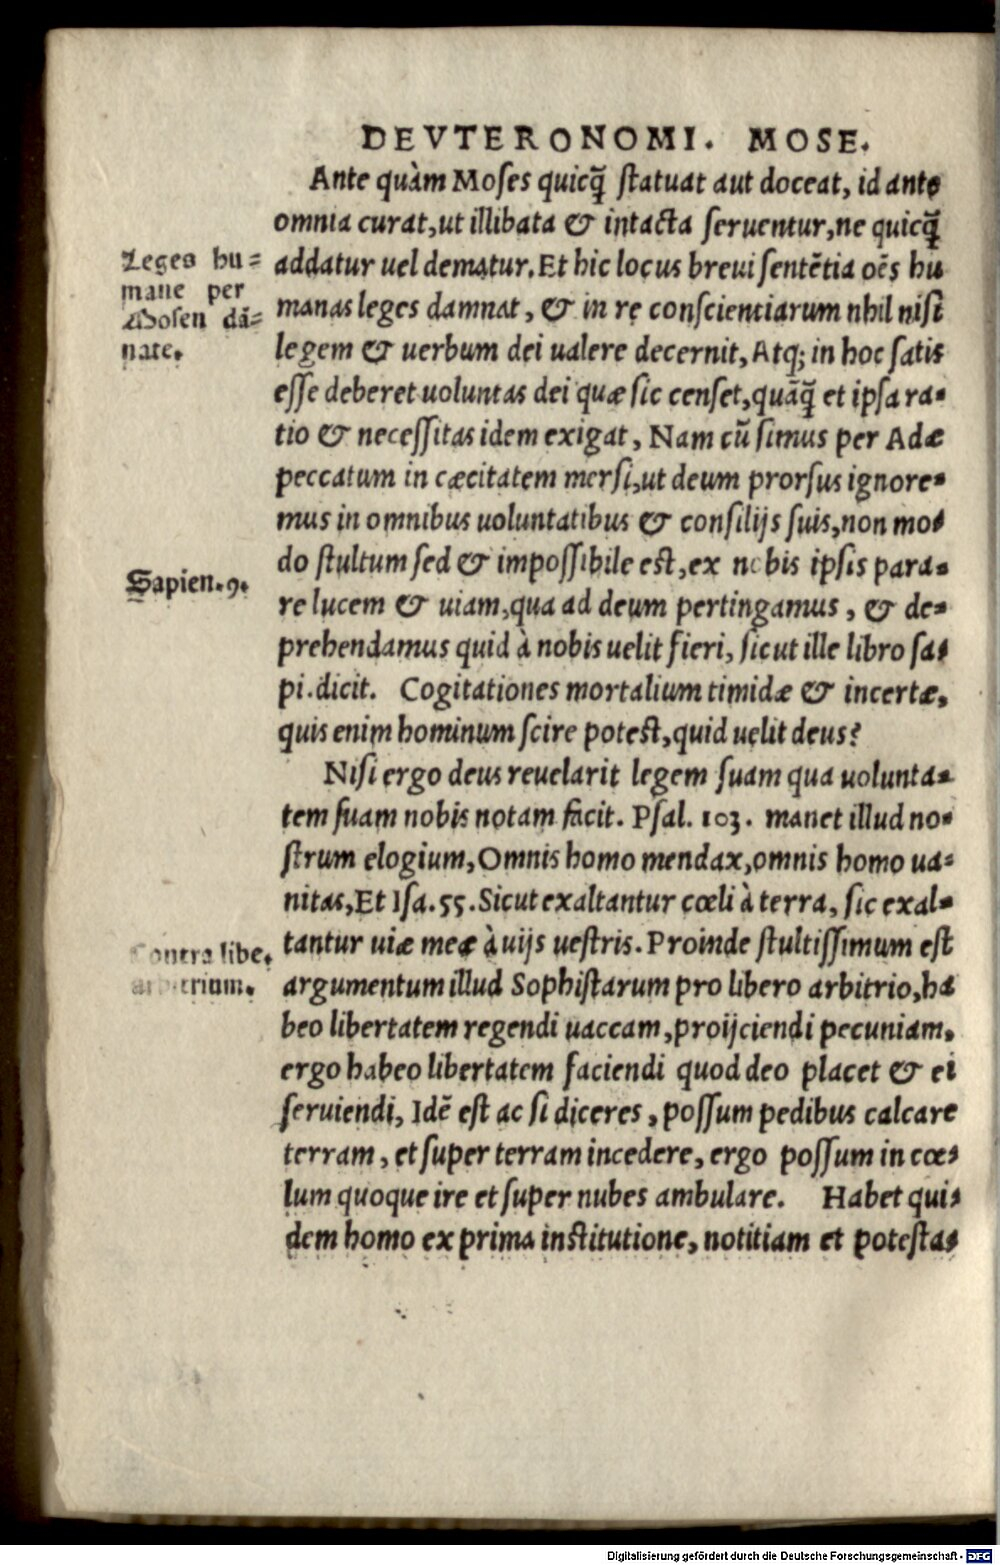 DEVTERONOMI. MOSE.
Ante quàm Moses quicq̃ ſtatuat aut doceat, id ante
omnia curat, ut illibata & intacta ſeruentur, ne quicq̃
Leges hu=
mane per
Mosen dã=
nate.
addatur uel dematur. Et hic locus breui ſentẽtia oẽs hu
manas leges damnat, & in re conſcientiarum nhil niſi
legem & uerbum dei ualere decernit, Atq; in hoc ſatis
eſſe deberet uoluntas dei quæ ſic cenſet, quãq̃ et ipſa ra-
tio & neceſſitas idem exigat, Nam cũ ſimus per Adæ
peccatum in cæcitatem merſi, ut deum prorſus ignore-
mus in omnibus uoluntatibus & conſilijs ſuis, non mo-
do ſtultum ſed & impoſſibile eſt, ex nobis ipſis para-
Sapien.9.
re lucem & uiam, qua ad deum pertingamus, & de-
prehendamus quid à nobis uelit fieri, ſicut ille libro ſa-
pi. dicit. Cogitationes mortalium timidæ & incertæ,
quis enim hominum ſcire poteſt, quid uelit deus?
Niſi ergo deus reuelarit legem ſuam qua uolunta-
tem ſuam nobis notam facit. Pſal. 103. manet illud no-
ſtrum elogium, Omnis homo mendax, omnis homo ua-
nitas, Et Iſa. 55. Sicut exaltantur cœli à terra, ſic exal-
Contra libe.
arbitrium.
tantur uiæ meæ à uijs ueſtris. Proinde ſtultiſſimum eſt
argumentum illud Sophiſtarum pro libero arbitrio, ha
beo libertatem regendi uaccam, proijciendi pecuniam,
ergo habeo libertatem faciendi quod deo placet & ei
ſeruiendi, Idẽ eſt ac ſi diceres, poſſum pedibus calcare
terram, et ſuper terram incedere, ergo poſſum in cœ-
lum quoque ire et ſuper nubes ambulare. Habet qui-
dem homo ex prima inſtitutione, notitiam et poteſta-
Digitalisierung gefördert durch die Deutsche Forschungsgemeinschaft - DFG